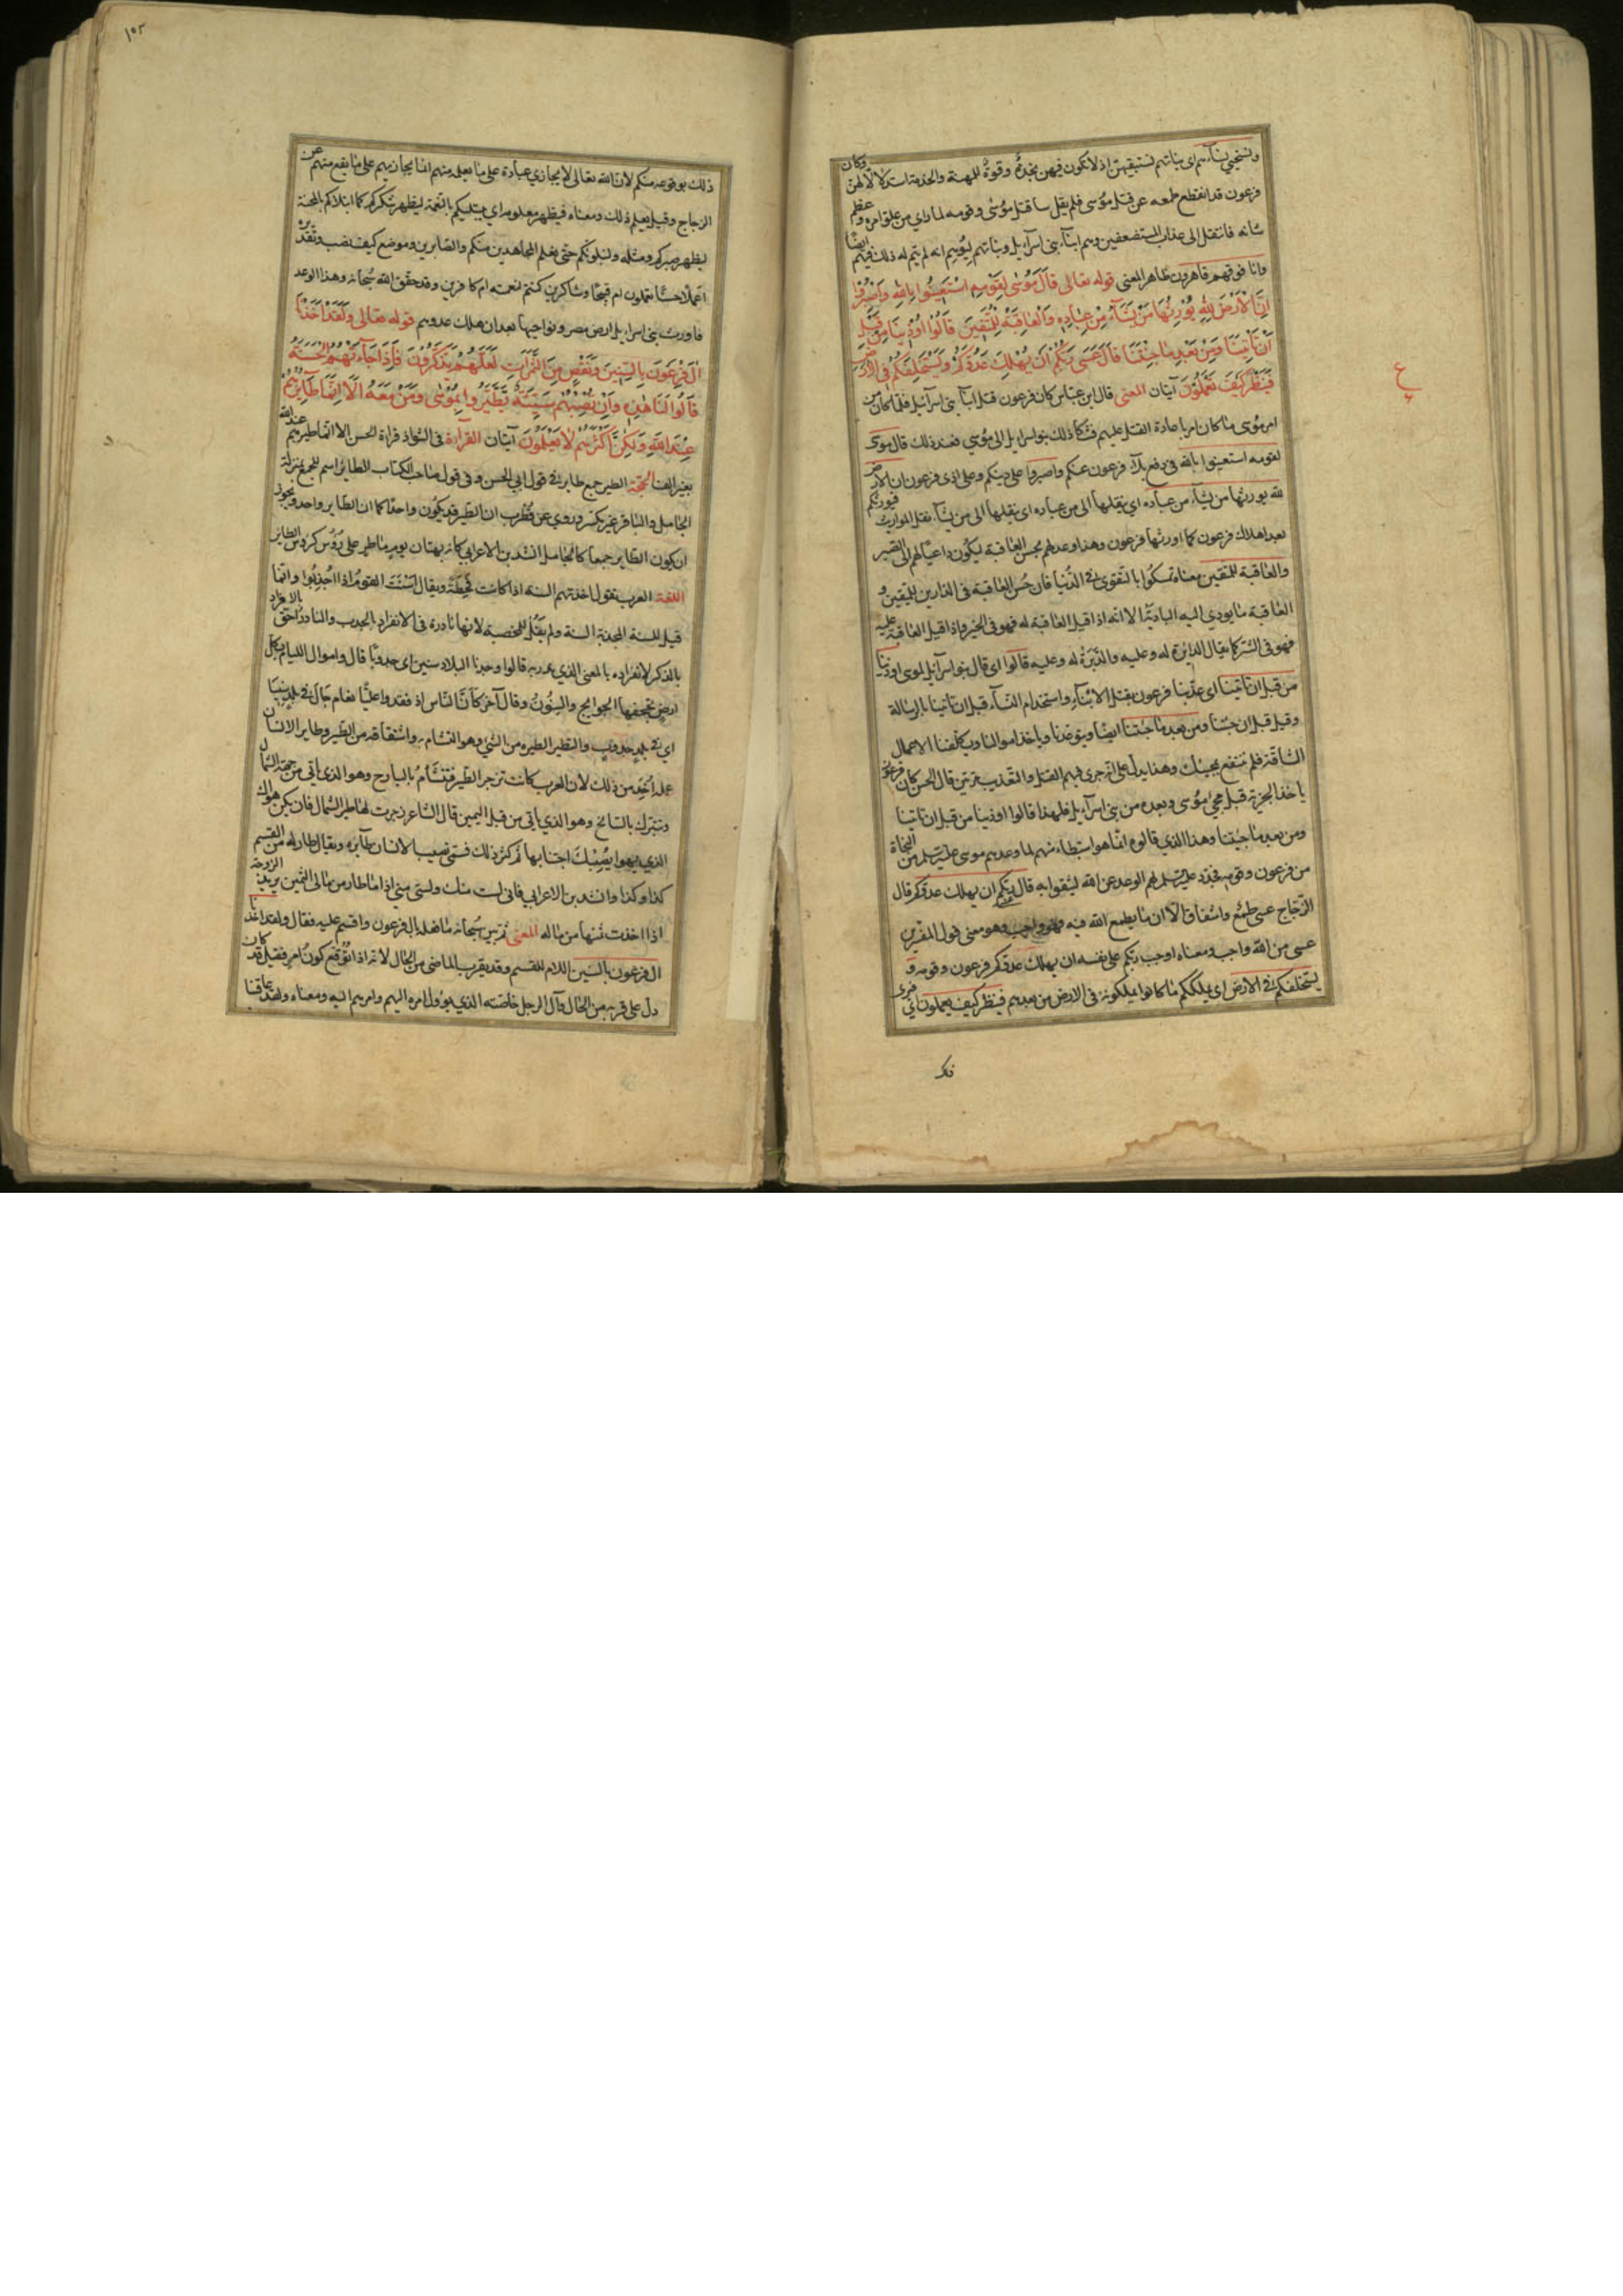 ونستحيي نساءهم اى بناتهم نستبقيهن اذ لا يكون فيهن نجدة وقوة للمهنة والخدمة استذلالا لهن وكان
فرعون قد انقطع طمعه عن قتل موسى فلم يقل سا قتل موسى وقومه لما راى من علو امره وعظم
شانه فانتقل الى عذاب المستضعفين وهم ابناء بنى اسرآءيل وبناتهم ليوهم انه لم يتم له ذلك فيهم ايضا
وانا فوقهم قاهرون ظاهر المعنى قوله تعالى قَالَ مُوسٰى لِقَوْمِهِ اسْتَعِينُوا بِاللهِ وَاصْبِرُوا
اِنَّ الْاَرْضَ لِلّٰهِ يُوْرِثُهَا مَنْ يَشَآءُ مِنْ عِبَادِهِ وَالْعَاقِبَةُ لِلْمُتَّقِينَ قَالُوا اُوْذِينَا مِنْ قَبْلِ
اَنْ تَاْتِيَنَا وَمِنْ بَعْدِ مَا جِئْتَنَا قَالَ عَسَى رَبُّكُمْ اَنْ يُهْلِكَ عَدُوَّكُمْ وَيَسْتَخْلِفَكُمْ فِى الْاَرْضِ
فَيَنْظُرَ كَيْفَ تَعْمَلُوْنَ آيتان المعنى قال ابن عباس كان فرعون قتل ابناء بنى اسرآئيل فلما كان من
امر موسى ما كان امر باعادة القتل عليهم فشكا ذلك بنو اسراءيل الى موسي فعند ذلك قال موسى
لقومه استعينوا بالله فى دفع بلاء فرعون عنكم واصبروا على دينكم وعلى اذى فرعون ان الارض
لله يورثها من يشاء من عباده اى ينقلها الى من عباده اى ينقلها الى من يشاء نقل المواريث فيورثكم
بعد اهلاك فرعون كما اورثها فرعون وهذا وعد لهم بحسن العاقبة ليكون داعيا لهم الى الصبر
والعاقبة للمتقين معناه تمسكوا بالتقوى فى الدنيا فان حسن العاقبة فى الدارين للمتقين و
العاقبة ما يودي اليه البادية الا انه اذا قيل العاقبة له فهو فى الخير واذا قيل العاقبة عليه
فهو فى الشر كما يقال الدائرة له وعليه والدبرة له وعليه قالوا اى قال بنو اسرآئيل لموسى اوذينا
من قبل ان تاتينا اى عذبنا فرعون بقتل الابناء واستخدام النساء قبل ان تاتينا بالرسالة
وقيل قبل ان جئتنا ومن بعد ما جئتنا ايضا ويتوعدنا وياخذ اموالنا ويكلفنا الاعمال
الشاقة فلم ننتفع بمجيئك وهذا يدل على انه جرى فيهم القتل والتعذيب مرتين قال الحسن كان فرعون
ياخذ الجزية قبل مجئ موسى وبعده من بنى اسرآءيل فلهذا قالوا اوذينا من قبل ان تاتينا
ومن بعد ما جئتنا وهذا الذي قالوه انما هو استبطاء منهم لما وعدهم موسى عليه السلم من النجاة
من فرعون وقومه فجدد عليه السلم لهم الوعد عن الله ليثقوا به قال ربكم ان يهلك عدوكم قال
الزجاج عسى طمع واشفاق الا ان ما يطمع الله فيه فهو واجب وهو معنى قول المفسرين
عسى من الله واجب ومعناه اوجب ربكم على نفسه ان يهلك عدوكم فرعون وقومه و
يستخلفكم فى الارض اى يملككم ما كانوا يملكونه فى الارض من بعدهم فينظر كيف يعملون اى فيرى
ذلك
١٠٢
ذلك بوقوعه منكم لان الله تعالى لا يجازي عباده على ما يعلمه منهم انما يجازيهم على ما يقع منهم عن
الزجاج وقيل يعلم ذلك ومعناه فيظهر معلومه اي يبتليكم بالنعمة ليظهر شكركم كما ابتلاكم بالمحنة
ليظهر صبركم ومثله ولنبلونكم حتى نعلم المجاهدين منكم والصابرين وموضع كيف نصب وتقديره
اعملا حسنا تعملون ام قبيحا وشاكرين كنتم نعمته ام كافرين وقد حقق الله سبحانه وهذا الوعد
فاورث بنى اسراءيل ارض مصر ونواحيها بعد ان هلك عدوهم قوله تعالى وَلَقَدْ اَخَذْنَا
اٰلَ فِرْعَوْنَ بِالسِّنِينَ وَنَقْصٍ مِنَ الثَّمَرَاتِ لَعَلَّهُمْ يَذَّكَّرُوْنَ فَاِذَا جَآءَتْهُمُ الْحَسَنَةُ
قَالُوا لَنَا هٰذِهِ وَاِنْ تُصِبْهُمْ سَيِّئَةٌ يَطَّيَّرُوا بِمُوْسٰى وَمَنْ مَعَهُ اَلَا اِنَّمَا طَآئِرُهُمْ
عِنْدَ اللهِ وَلٰكِنَّ اَكْثَرَهُمْ لَا يَعْلَمُوْنَ آيتان القرآءة فى الشواذ قراءة الحسن الا انما طيرهم عند الله
بغير الف الحجة الطير جمع طاير فى قول ابي الحسن وفى قول صاحب الكتاب الطائر اسم للجمع بمنزلة
الجامل والباقر غير مكسر وروي عن قطرب ان الطير قد يكون واحدا كما ان الطاير واحد ويجوز
ان يكون الطاير جمعا كالجامل انشد بن الاعرابي كانه بهتان يوم ماطر على رؤس كرؤس الطاير
اللغة العرب تقول اخذتهم السنة اذا كانت قحطة ويقال اسنت القوم اذا اجدبوا وانما
قيل للسنة المجدبة السنة ولم يقل للخصبة لانها نادرة فى الانفراد بالجدب والنادر احق بالافراد
بالذكر لانفراده بالمعنى الذي ندر به قالوا وجدنا البلاد سنين اى جدوبا قال واموال اللئام بكل
ارض تجحفها الجوايح والسنون وقال آخر كان الناس اذ فقدوا عليا نعام جال فى بلد سنينا
اى فى بلد جدوب والتطير الطيرة من الشئ وهو التشام به واشتقاقه من الطير وطاير الانسان
عمله اخذ من ذلك لان العرب كانت تزجر الطير فتتشأم بالبارح وهو الذي ياتى من جهة الشمال
وتتبرك بالسانح وهو الذي ياتى من قبل اليمين قال الشاعر زجرت لها طير الشمال فان يكن هواك
الذي يهوا يصبك اجتنابها ثم كثر ذلك فسمى نصيب الانسان طآئره ويقال طار له من القسم
كذا وكذا وانشد بن الاعرابي فانى لست منك ولست مني اذا ما طار من مالى الثمين يريد الزوجة
اذا اخذت ثمنها من ماله المعنى ثم بين سبحانه ما فعله بال فرعون واقسم عليه فقال ولقد اخذنا
ال فرعون بالسنين اللام للقسم وقد يقرب الماضى من الحال لانه اذا توقع كون امر فقيل قد كان
دل على قربه من الحال وآل الرجل خاصته الذي يؤول امره اليهم وامرهم اليه ومعناه ولقد عاقبنا